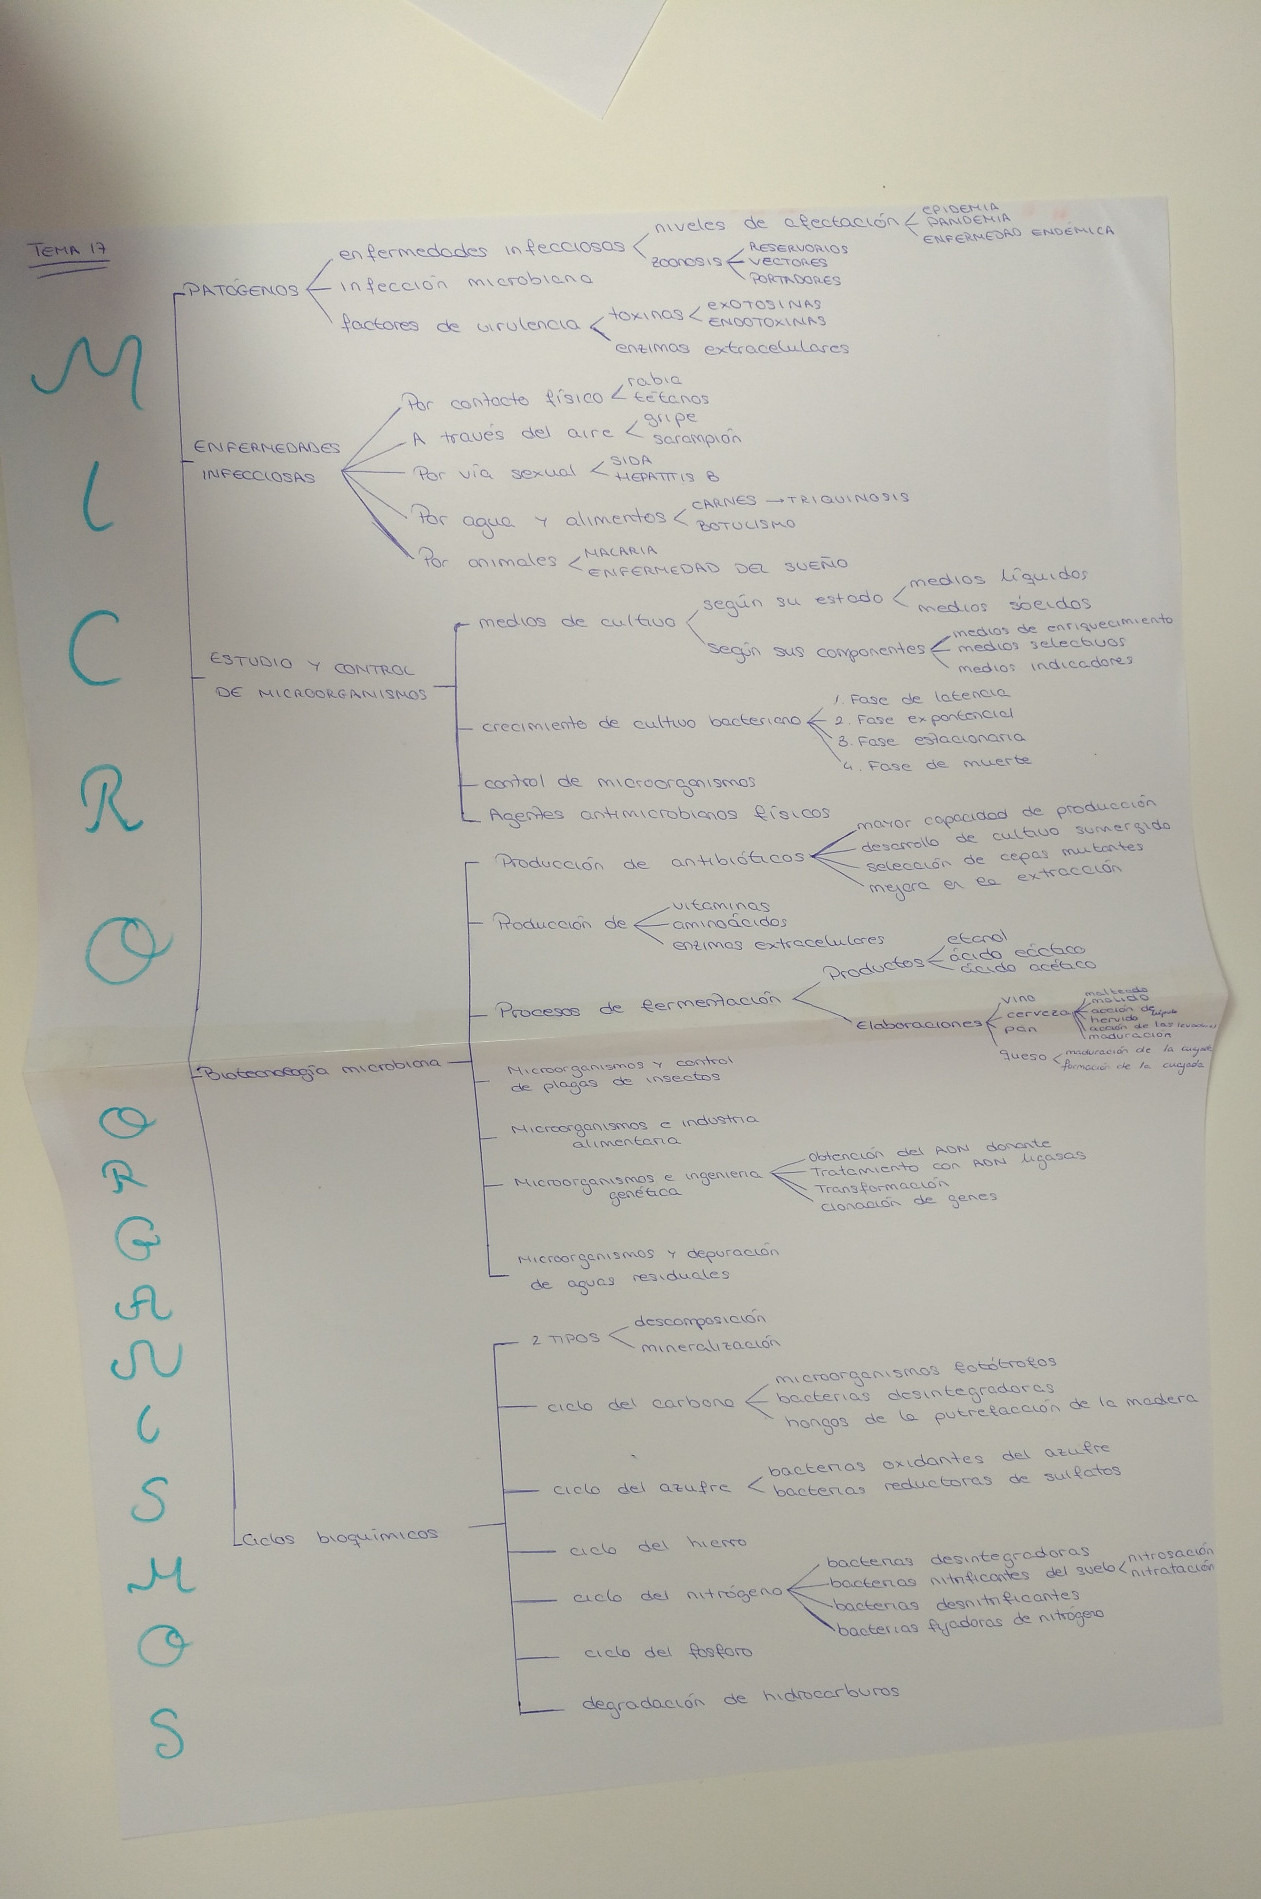 TEMA 17
MICROORGANISMOS
PATÓGENOS
enfermedades infecciosas
niveles de afectación
EPIDEMIA
PANDEMIA
ENFERMEDAD ENDÉMICA
zoonosis
RESERVORIOS
VECTORES
PORTADORES
infección microbiana
factores de virulencia
toxinas
EXOTOSINAS
ENDOTOXINAS
enzimas extracelulares
ENFERMEDADES
INFECCIOSAS
Por contacto físico
rabia
tétanos
A través del aire
gripe
sarampión
Por vía sexual
SIDA
HEPATITIS B
Por agua y alimentos
CARNES → TRIQUINOSIS
BOTULISMO
Por animales
MALARIA
ENFERMEDAD DEL SUEÑO
ESTUDIO Y CONTROL
DE MICROORGANISMOS
medios de cultivo
según su estado
medios líquidos
medios sólidos
según sus componentes
medios de enriquecimiento
medios selectivos
medios indicadores
crecimiento de cultivo bacteriano
1. Fase de latencia
2. Fase exponencial
3. Fase estacionaria
4. Fase de muerte
control de microorganismos
Agentes antimicrobianos físicos
Biotecnología microbiana
Producción de antibióticos
mayor capacidad de producción
desarrollo de cultivo sumergido
selección de cepas mutantes
mejora en la extracción
Producción de
vitaminas
aminoácidos
enzimas extracelulares
Procesos de fermentación
Productos
etanol
ácido láctico
ácido acético
Elaboraciones
vino
cerveza
malteado
molido
acción de
hervido
acción de las levaduras
maduración
pan
queso
maduración de la cuajada
formación de la cuajada
Microorganismos y control
de plagas de insectos
Microorganismos e industria
alimentaria
Microorganismos e ingeniería
genética
Obtención del ADN donante
Tratamiento con ADN ligasas
Transformación
clonación de genes
Microorganismos y depuración
de aguas residuales
Ciclos bioquímicos
2 TIPOS
descomposición
mineralización
ciclo del carbono
microorganismos fotótrofos
bacterias desintegradoras
hongos de la putrefacción de la madera
ciclo del azufre
bacterias oxidantes del azufre
bacterias reductoras de sulfatos
ciclo del hierro
ciclo del nitrógeno
bacterias desintegradoras
bacterias nitrificantes del suelo
nitrosación
nitratación
bacterias desnitrificantes
bacterias fijadoras de nitrógeno
ciclo del fósforo
degradación de hidrocarburos